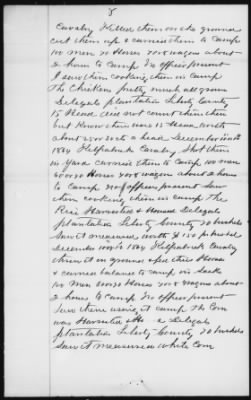 8
Cavalry Killed them on the ground
cut them up & carried them to Camp
100 men 20 Horses 7 or 8 wagons about
2 hours to Camp No officer present
I saw them cooking them in Camp
The Chickens pretty much all grown
Delegals plantation Liberty County
15 Head did not count them then
but Know there were 15 Head worth
about 25 cts a head December
1864 Kilpatricks Cavalry Shot them
in Yard carried them to Camp 100 men
Horses 7 or 8 wagons about 2 hours
to Camp No officers present Saw
them cooking them in Camp The
Rice Harvested & Housed Delegals
plantation Liberty County 20 bushels
Saw it measured worth $ 1.50 pr bushel
December 1864 Kilpatrick Cavalry
threw it on ground & fed their Horses
& carried balance to Camp in Sacks
100 men Horses 7 or 8 Wagons about
2 hours to Camp No officers present
Saw them using it Camp The Corn
was Harvested & Delegals
plantation Liberty County 20 bushels
Saw it measured White Corn